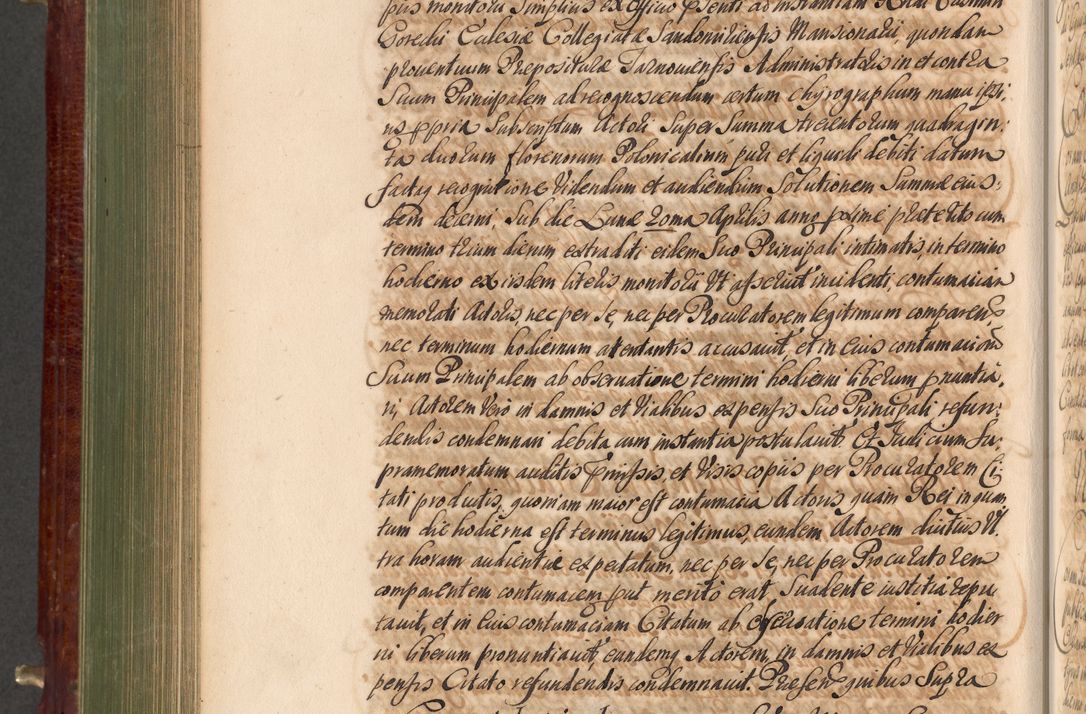 pris monitorii simplicis ex officio pñti ad instantiam Rndi Casimiri
Gorecki Eclesiæ Collegiatæ Sandomiriensis Mansionarii, quondam
prouentuum Præpositura Tarnouiensis Administratoris in et contra
Suum Principalem ad recognoscendum certum chyrographum manu ipsi,
us ppria Subscriptum Actori Super Summa trecentorum quadragin:
ta duorum florenorum Polonicalium puri et liquidi debiti datum
factaq recognitione Videndum et audiendum Solutionem Summæ eius:
dem decerni, Sub die Lunæ 20ma Aprilis anno pximè præterito cum
termino trium dierum extraditi eidem Suo Principali intimatis, in termino
hodierno ex iisdem literis monitorii Vt asseruit incidenti, contumaciam
memorati Actoris, nec per Se, nec per Procuratorem legitimum comparen:
nec terminum hodiernum attentantis accusauit, et in eius contumaciam
Suum Principalem ab obseruatione termini hodierni liberum pnuntia,
ri, Actorem Vero in damnis et Vialibus expensis Suo Principali refun:
dendis condemnari debita cum instantia postulauit. Et Iudicium Su:
pramemoratum auditis pmissis, et Visis copiis per Procuratorem Ci
tati productis, quoniam maior est contumacia Actoris quam Rei in quan
tum die hodierna est terminus legitimus, eundem Actorem diutius Vl
tra horam audientiæ expectatum, nec per Se, nec per Procuratorem
comparentem contumacem put merito erat Suadente iustitia repu
tauit, et in eius contumaciam Citatum ab obseruatione termini hodier
ni liberum pronuntiauit eundemq Actorem, in damnis et Vialibus ex
pensis Citato refundendis condemnauit. Præsen quibus Supra